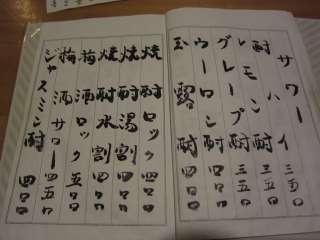 サワー
酎ハイ 三五〇
レモン 三五〇
グレープ酎 三五〇
ウーロン酎 四〇〇
玉露酎 四〇〇
焼酎ロック 四〇〇
焼酎湯割 四〇〇
焼酎水割 四〇〇
梅酒ロック 五〇〇
梅酒サワー 四五〇
ジャスミン酎 四〇〇